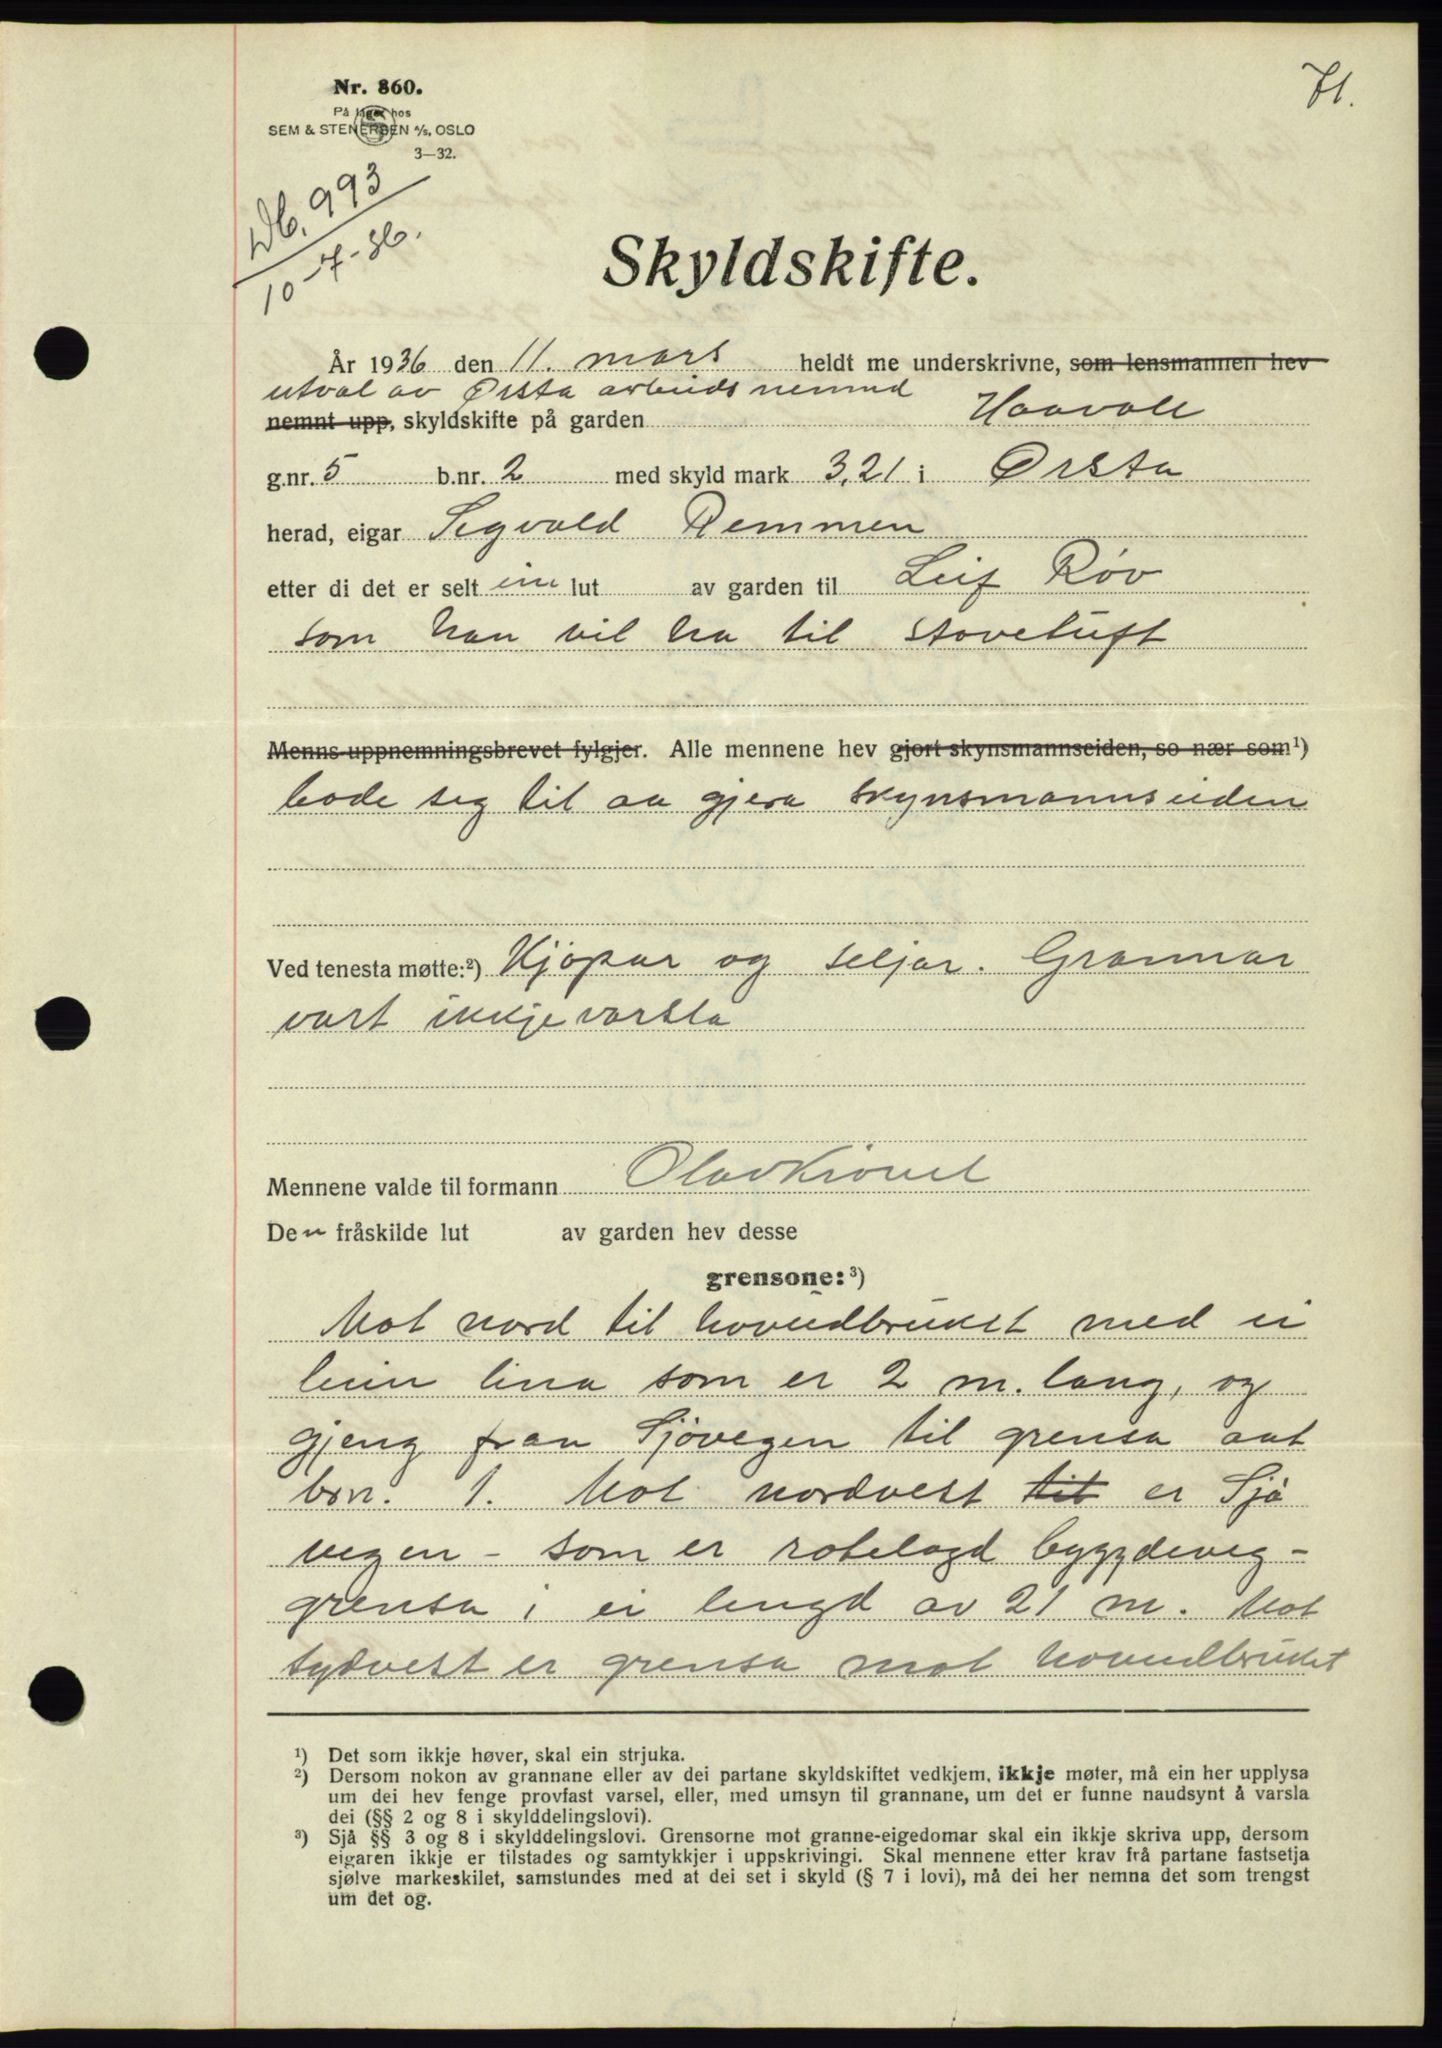 71.
Nr. 860.
På lager hos
SEM & STENERSEN A/S, OSLO
3—32.
Db. 993
10-7-36.
Skyldskifte.
År 1936 den 11. mars heldt me underskrivne, som lensmannen hev
utval av Ørsta arbeidsnemnd
nemnt upp, skyldskifte på garden Haavoll
g.nr. 5 b.nr. 2 med skyld mark 3,21 i Ørsta
herad, eigar Sigvald Remmen
etter di det er selt ein lut av garden til Leif Röv
som han vil ha til stovetuft
Menns-uppnemningsbrevet fylgjer. Alle mennene hev gjort skynsmannseiden, so nær som¹)
bode seg til aa gjera skynsmannseiden
Ved tenesta møtte:²) Kjöpar og seljar. Grannar
vart ikkje varsla
Mennene valde til formann Olav
Den fråskilde lut av garden hev desse
grensone:³)
Mot nord til hovudbruket med ei
bein lina som er 2 m. lang, og
gjeng fraa Sjövegen til grensa aat
brn. 1. Mot nordvest til er Sjö
vegen – som er rotelagd bygdeveg –
grensa i ei lengd av 21 m. Mot
sydvest er grensa mot hovudbruket
¹) Det som ikkje høver, skal ein strjuka.
²) Dersom nokon av grannane eller av dei partane skyldskiftet vedkjem, ikkje møter, må ein her upplysa
um dei hev fenge provfast varsel, eller, med umsyn til grannane, um det er funne naudsynt å varsla
dei (§§ 2 og 8 i skylddelingslovi).
³) Sjå §§ 3 og 8 i skylddelingslovi. Grensorne mot granne-eigedomar skal ein ikkje skriva upp, dersom
eigaren ikkje er tilstades og samtykkjer i uppskrivingi. Skal mennene etter krav frå partane fastsetja
sjølve markeskilet, samstundes med at dei set i skyld (§ 7 i lovi), må dei her nemna det som trengst
um det og.